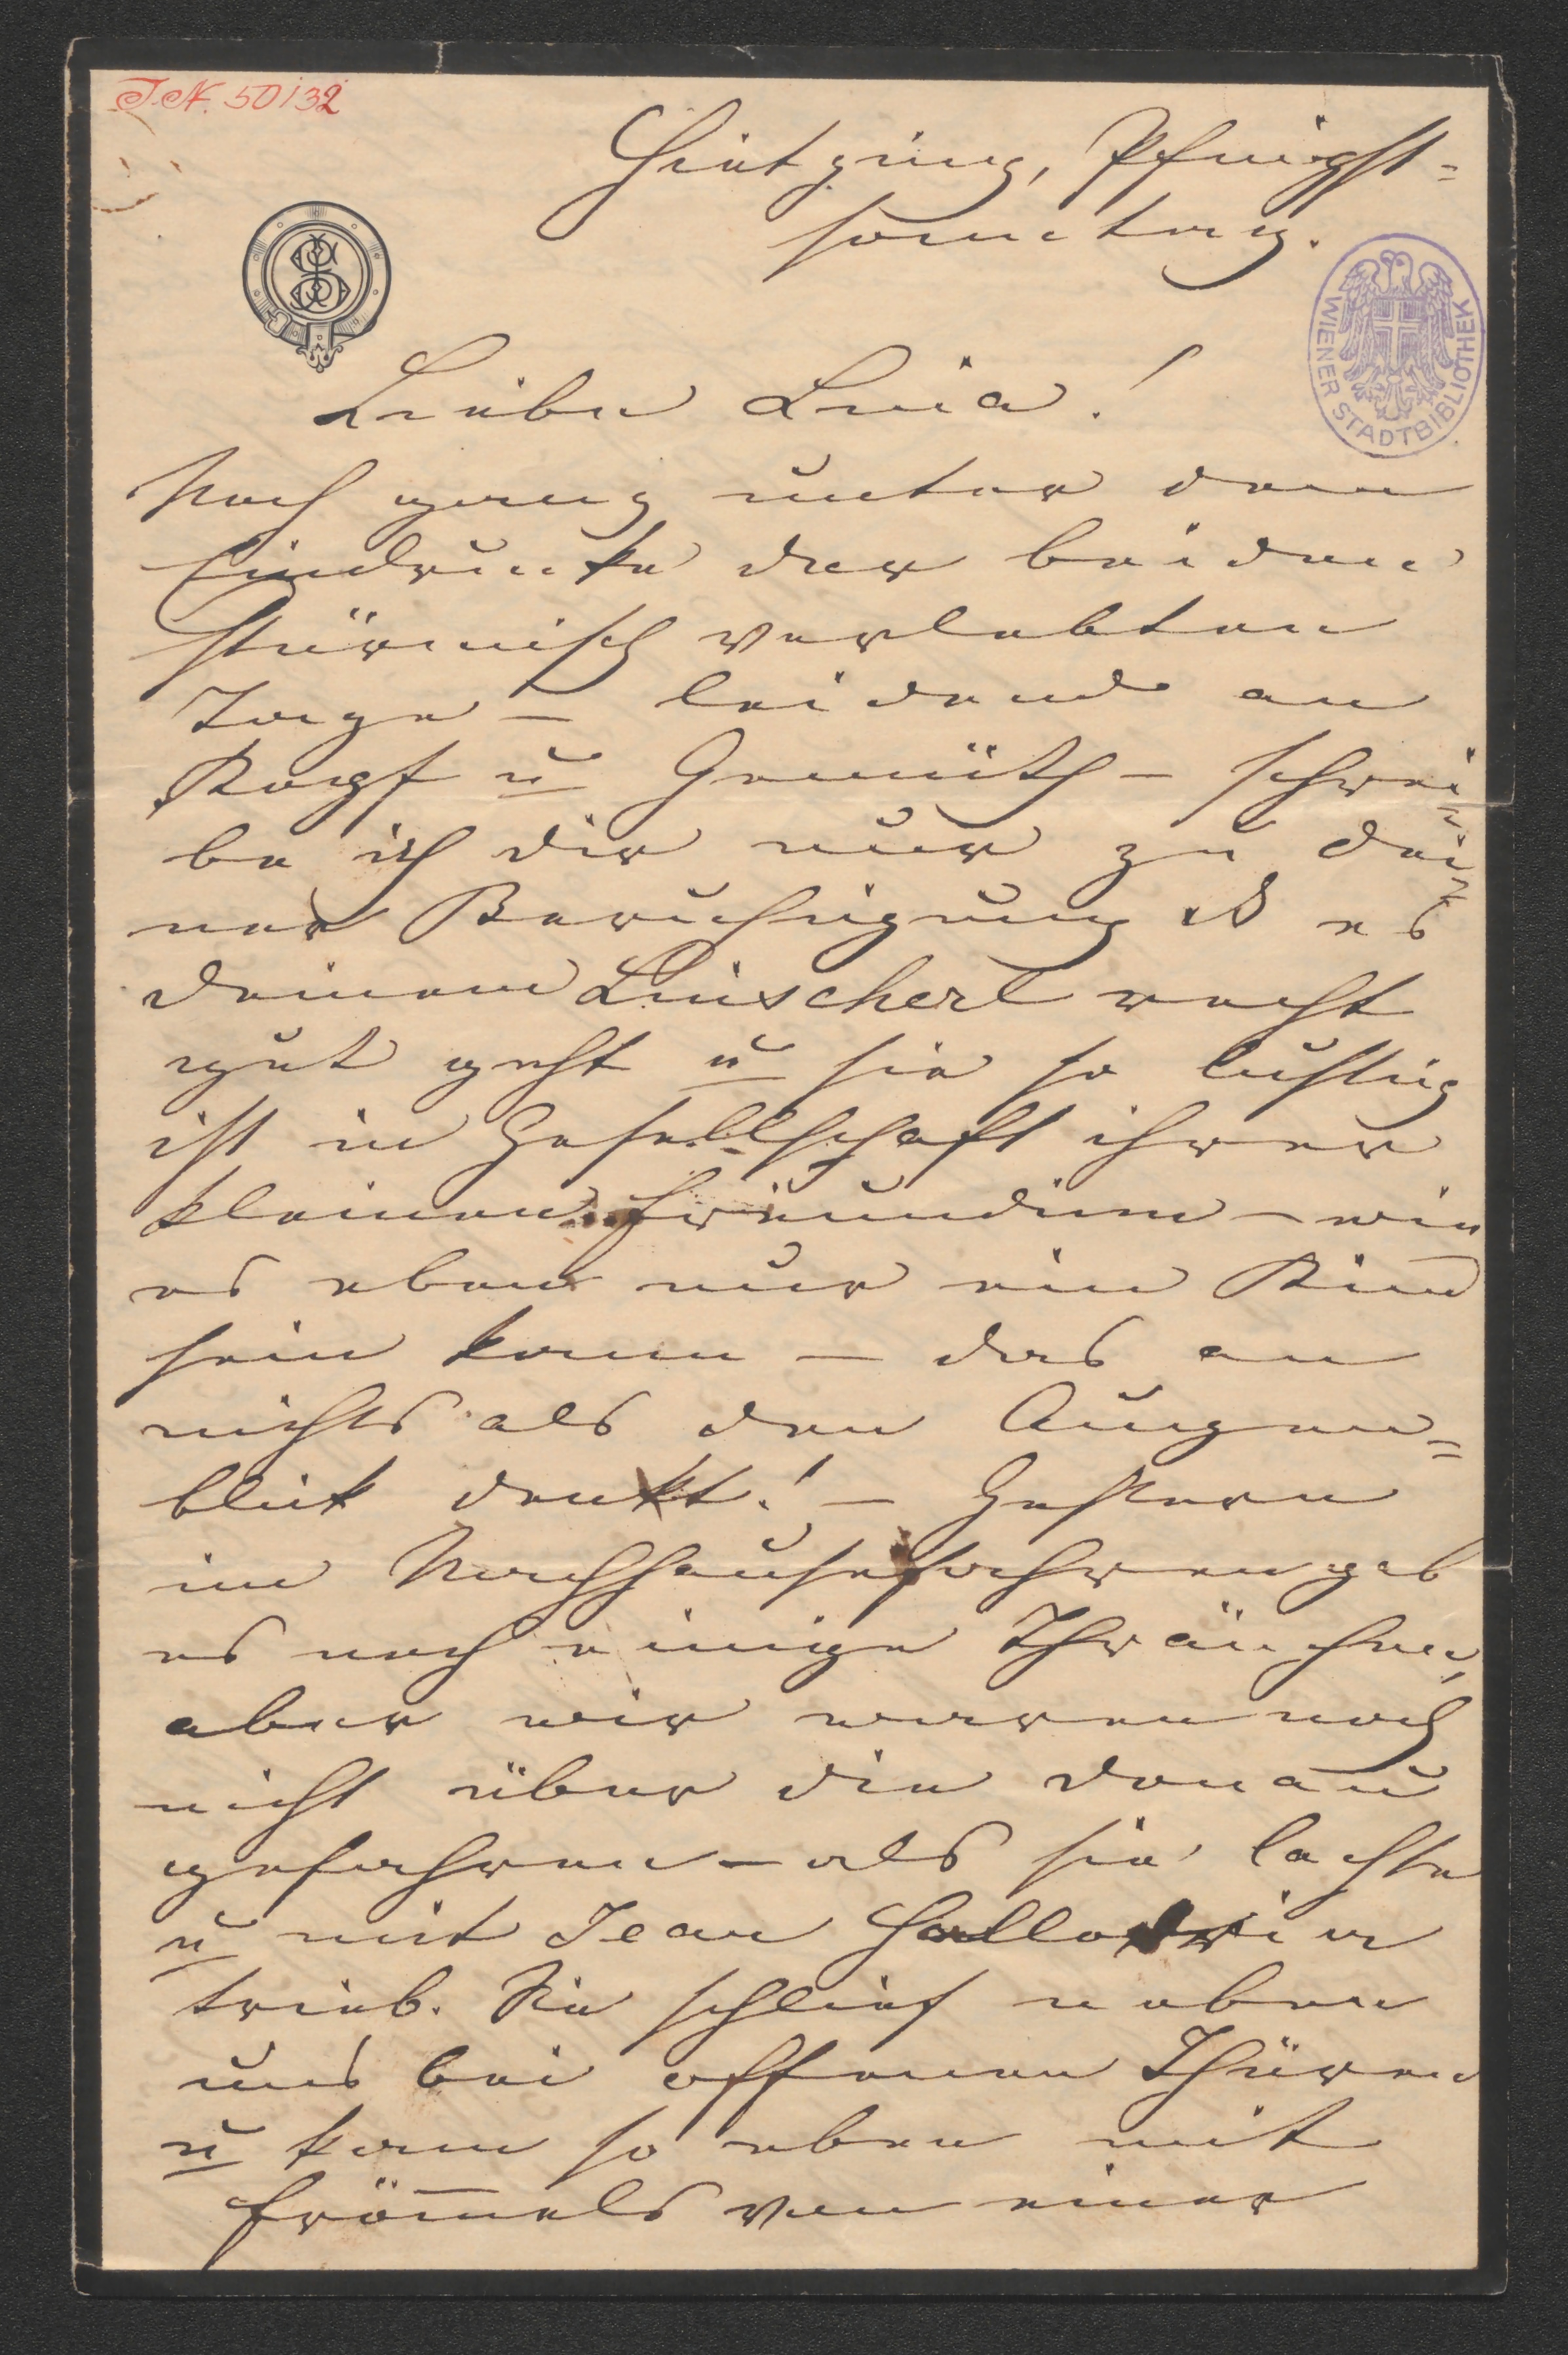 I.N. 50132
Hietzing, Pfingst-
sonntag.
WIENER STADTBIBLIOTHEK
Liebe Luia!
Noch ganz unter dem
Eindrucke der beiden
stürmisch verlebten
Tage – leidend an
Kopf u Gemüth – schrei-
be ich dir nur zu dei-
ner Beruhigung daß es
deinem Luischerl recht
gut geht u sie so lustig
ist in Gesellschaft ihrer
kleinen Freundinn – wie
es eben nur ein Kind
sein kann – das an
nichts als den Augen-
blick denkt! – Gestern
im Nachhausefahren gab
es noch einige Thränchen,
aber wir waren noch
nicht über die Donau
gefahren – als sie lachte
u mit Jean
trieb. Sie schlief neben
uns bei offenen Thüren
u kam so eben mit
Frömels von einer